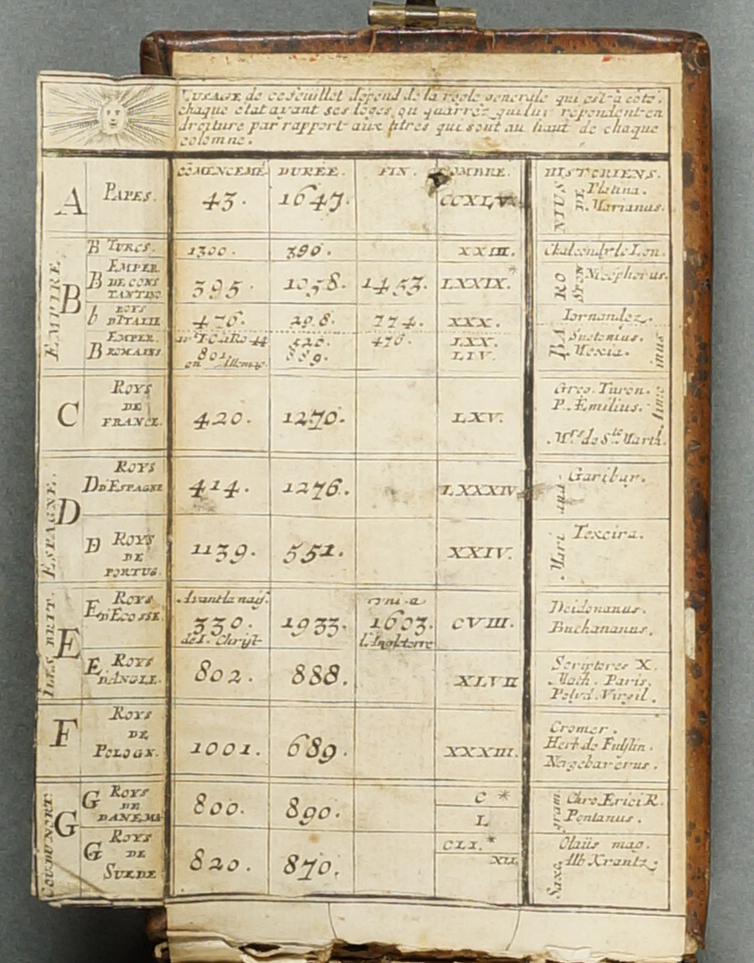 L'USAGE de ce feuillet depend de la regle generale qui est à côté,
chaque etat ayant ses loges, ou quarréz qui lui repondent en
droiture par rapport aux titres qui sont au haut de chaque
colomne.
COMENCEMĒ. DURÉE. FIN. NOMBRE. HISTORIENS.
A PAPES. 43. 1647. Platina.
Marianus.
EMPIRE.
B
B TURCS. 1300. 390. XXIII.
B EMPER.
DE CONS
TANTINO 395. 1058. 1453. LXXIX.* Nicephorus.
b ROYS
D'ITALIE 476. 298. 774. XXX. Iornandez.
B EMPER.
ROMAINS 476. LXX. Suetonius.
801 889. LIV. Mexia.
BARONIUS
C ROYS
DE
FRANCE. 420. 1270. LXV. Greg. Turon.
P. Æmilius.
Mrs de Ste Marth.
ESPAGNE.
D
D ROYS
D'ESPAGNE 414. 1276. LXXXIV Garibay.
D ROYS
DE
PORTUG. 1139. 551. XXIV. Texeira.
Mariana
ILES BRIT.
E
E ROYS
D'ECOSSE. Avant la nais.
330.
de I. Christ 1933. uni a
1603.
l'Angleterre CVIII. Deidonanus.
Buchananus.
E ROYS
D'ANGLE. 802. 888. XLVII Scriptores X.
Math. Paris.
Polyd. Virgil.
F ROYS
DE
POLOGN. 1001. 689. XXXIII. Cromer.
Herb. de Fulstin.
Neugebaverus.
COU. DU NORT
G
G ROYS
DE
DANEMA. 800. 890. C *
L Chro. Erici R.
Pontanus.
G ROYS
DE
SUEDE 820. 870. CLI.*
XII. Olaüs mag.
Alb Krantz.
Saxo gram.